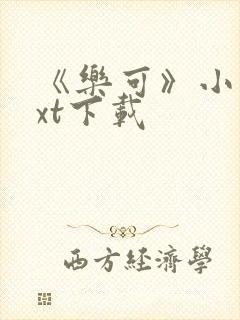 《樂可》小
xt下載
西方經濟學